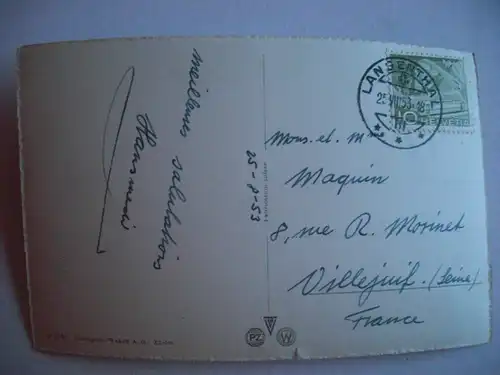 Meilleures salutations
25-8-53
LANGENTHAL
10 HELVETIA
Mons. et. Mme
Maquin
8, rue R. Morinet
Villejuif. (Seine)
France
PZ W